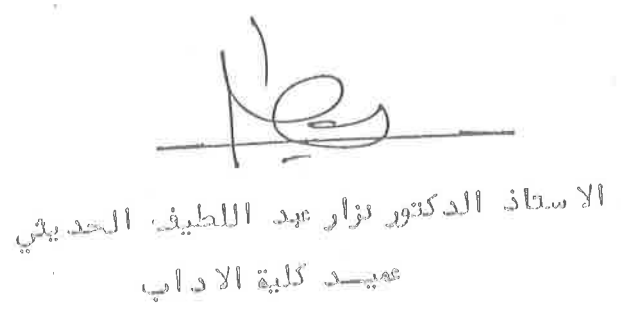 الاستاذ الدكتور نزار عبد اللطيف الحديثي
عميـد كلية الاداب